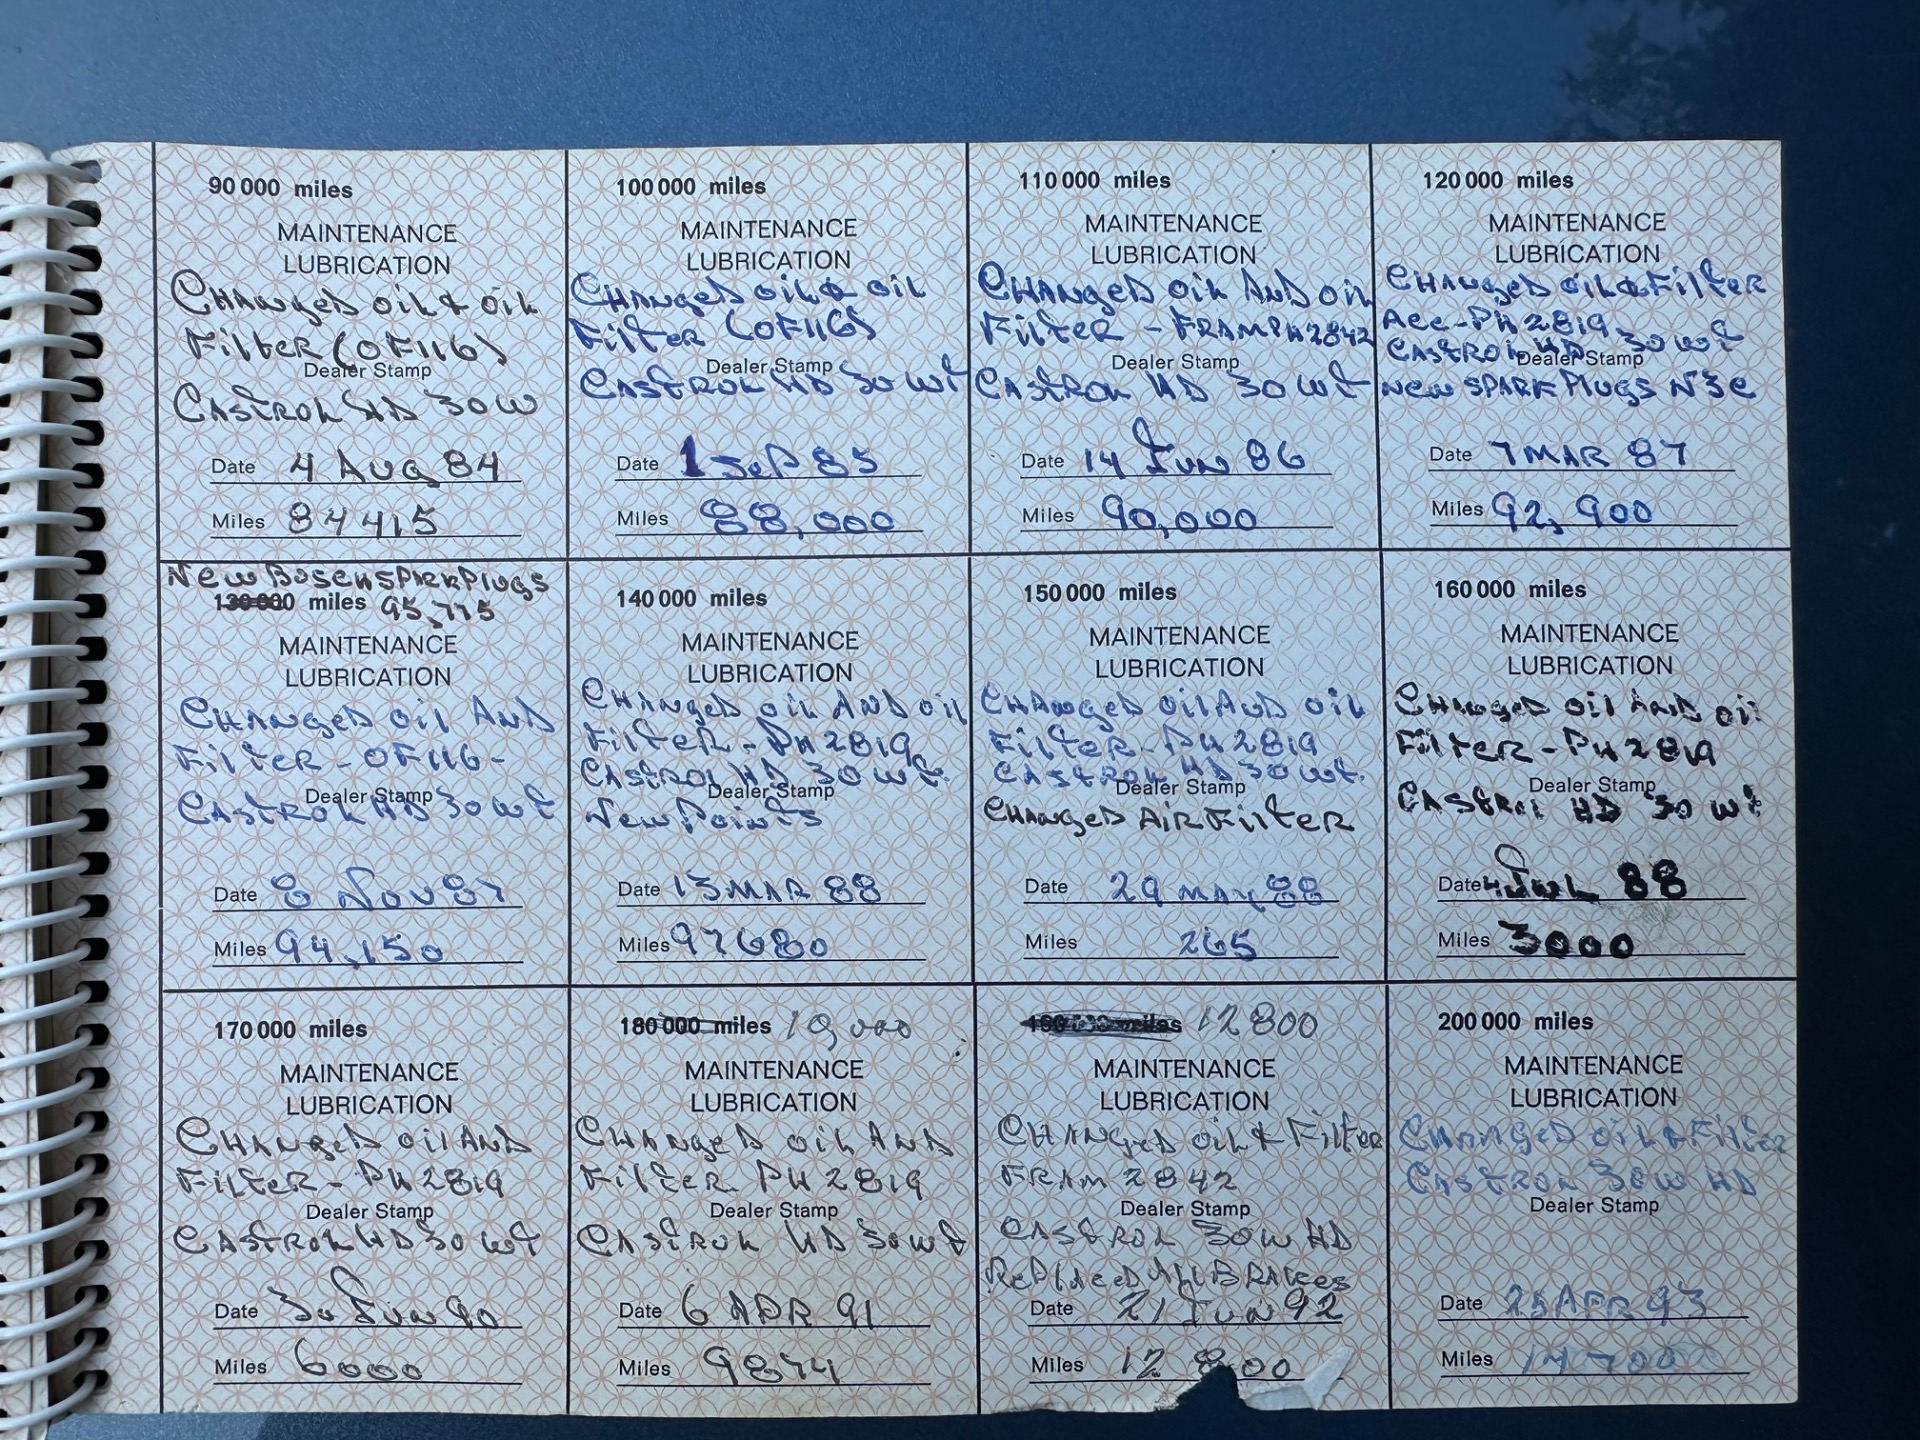 90 000 miles
MAINTENANCE
LUBRICATION
CHANgeD oil & oil
FilteR (OF116)
Dealer Stamp
CAStROL HD 30W
Date 4 AUg 84
Miles 84415
100 000 miles
MAINTENANCE
LUBRICATION
CHANgeD oil & oil
FilteR (OF116)
Dealer Stamp
CAStROL HD 30 Wt
Date 1 SeP 85
Miles 88,000
110 000 miles
MAINTENANCE
LUBRICATION
CHANgeD oil AND oil
FilteR - FRAM PH2842
Dealer Stamp
CAStROL HD 30 Wt
Date 14 JUN 86
Miles 90,000
120 000 miles
MAINTENANCE
LUBRICATION
CHANgeD oil & FilteR
PH 2819
CAStROL HD 30 Wt
Dealer Stamp
New SPARK Plugs
Date 7 MAR 87
Miles 92,900
New BoscH SPARK Plugs
130 000 miles 95,775
MAINTENANCE
LUBRICATION
CHANgeD oil AND
FilteR - OF116 -
Dealer Stamp
CAStROL HD 30 Wt
Date 8 Nov 87
Miles 94,150
140 000 miles
MAINTENANCE
LUBRICATION
CHANgeD oil AND oil
FilteR - PH 2819
CAStROL HD 30 Wt.
Dealer Stamp
New Points
Date 13 MAR 88
Miles 97680
150 000 miles
MAINTENANCE
LUBRICATION
CHANgeD oil AND oil
FilteR - PH 2819
CAStROL HD 30 Wt.
Dealer Stamp
CHANgeD AiR FilteR
Date 29 MAY 88
Miles 265
160 000 miles
MAINTENANCE
LUBRICATION
CHANgeD oil AND oil
FilteR - PH 2819
Dealer Stamp
CAStROL HD 30 Wt
Date 4 JUL 88
Miles 3000
170 000 miles
MAINTENANCE
LUBRICATION
CHANgeD oil AND
FilteR - PH 2819
Dealer Stamp
CAStROL HD 30 Wt
Date 30 JUN 90
Miles 6000
180 000 miles 10,000
MAINTENANCE
LUBRICATION
CHANgeD oil AND
FilteR PH 2819
Dealer Stamp
CAStROL HD 30 Wt
Date 6 APR 91
Miles 9874
miles 12800
MAINTENANCE
LUBRICATION
CHANgeD oil & FilteR
FRAM 2842
Dealer Stamp
CAStROL 30W HD
RePlAceD All BRAkes
Date 21 JUN 92
Miles 12 800
200 000 miles
MAINTENANCE
LUBRICATION
CHANgeD oil & FilteR
CAStROL 30W HD
Dealer Stamp
Date 25 APR 93
Miles 14700